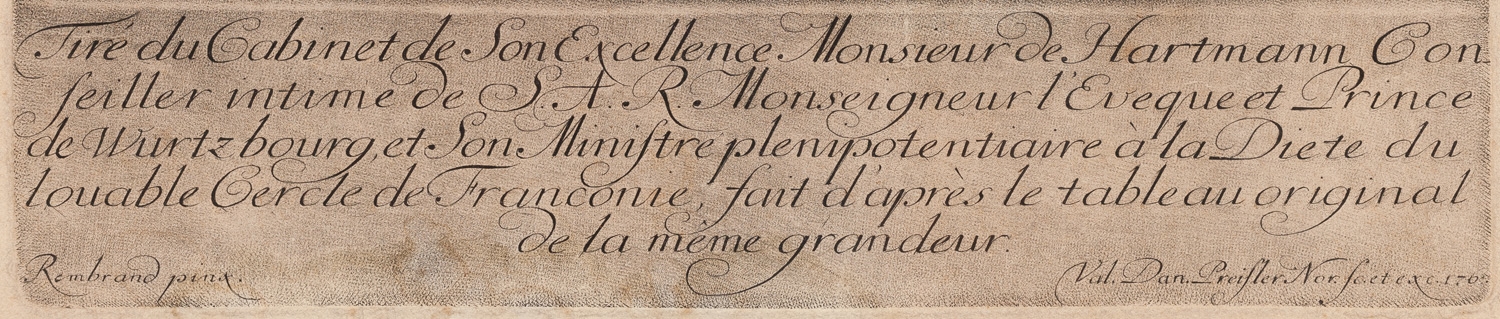 Tiré du Cabinet de Son Excellence Monsieur de Hartmann Con-
ſeiller intime de S. A. R. Monseigneur l'Eveque et Prince
de Wurtzbourg, et Son Miniſtre plenipotentiaire à la Diete du
louable Cercle de Franconie, fait d'après le tableau original
de la même grandeur.
Rembrand pinx.
Val. Dan. Preiſler Nor. ſc. et exc.